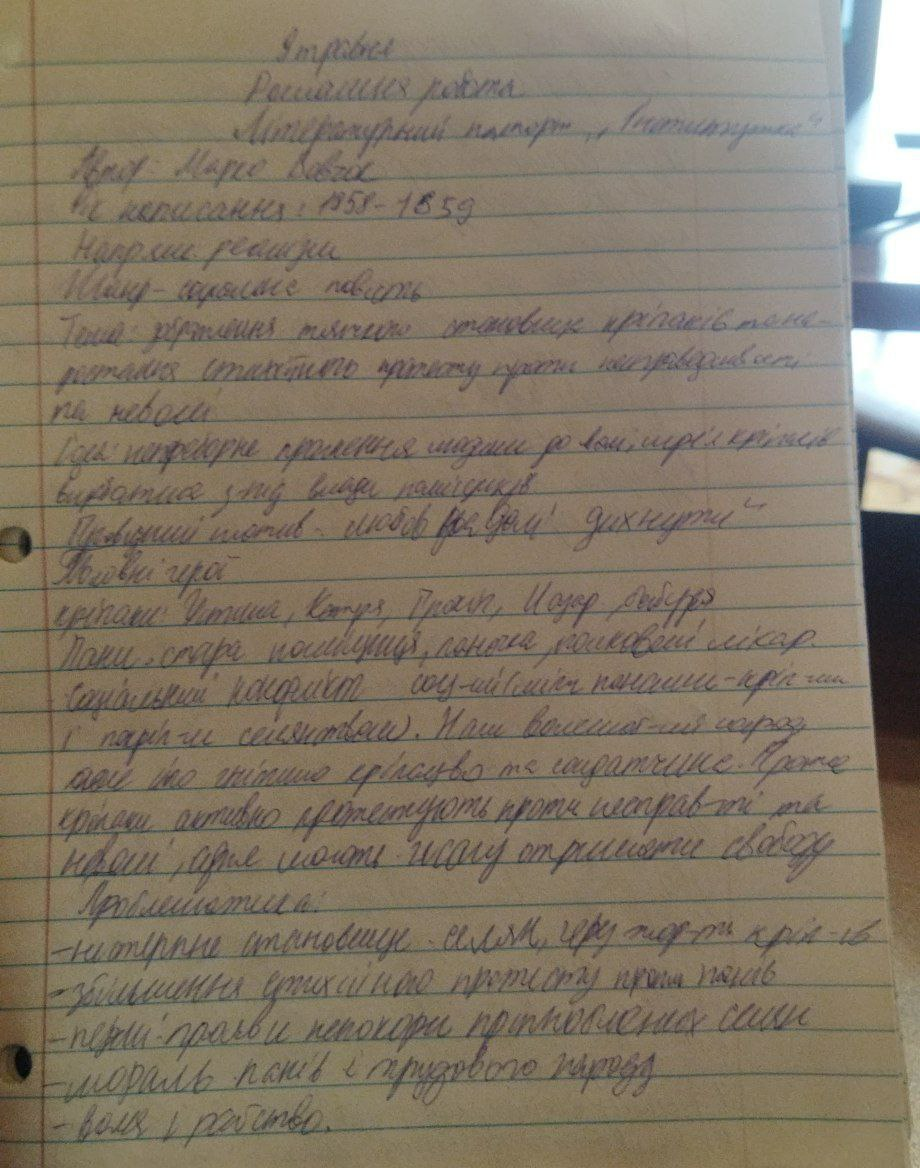 9 травня
Домашня робота
Літературний паспорт „Інститутка"
Автор: Марко Вовчок
Рік написання: 1858-1859
Напрям: реалізм
Жанр - соціальна повість
Тема: зображення тяжкого становища кріпаків та на-
ростання стихійного протесту проти несправедливості
та неволі
Ідея: непереборне прагнення людини до волі, мрія кріпаків
вирватися з-під влади поміщиків
Провідний мотив - любов волі дихнути"
Головні герої
кріпаки: Устина, Катря, Прокіп, Назар, бабуся
Пани: стара поміщиця, панночка, полковий лікар
Соціальний конфлікт соц-ий (між панами-кріп-ми
і закріп-м селянством). Наш волелюб-ий народ
адже його гнітило кріпацтво та солдатчина. Проте
кріпаки активно протестують проти несправ-ті та
неволі, адже мають жагу отримати свободу
Проблематика:
- нестерпне становище селян, жор-ть кріп-ів
- збільшення стихійного протесту проти панів
- перші прояви непокори поневолених селян
- мораль панів і трудового народу
- воля і рабство.